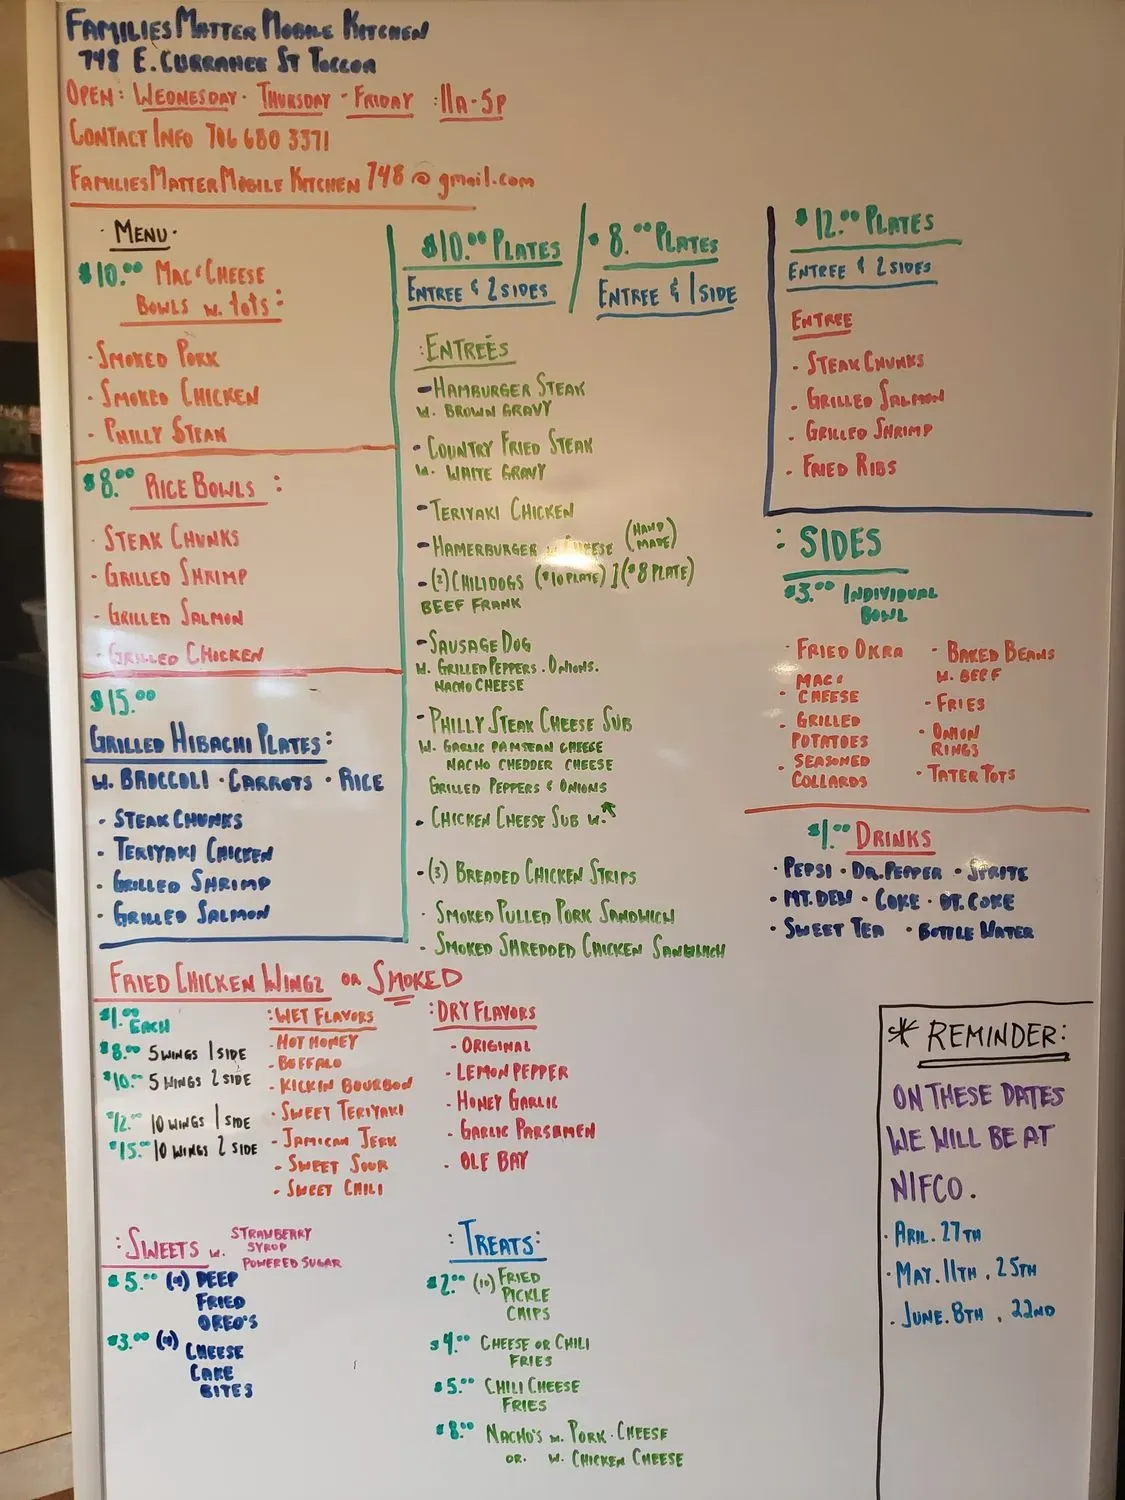 FAMILIES MATTER MOBILE KITCHEN
748 E. CURRAHEE ST TOCCOA
OPEN: WEDNESDAY - THURSDAY - FRIDAY :11A-5P
CONTACT INFO 706 680 3371
FAMILIESMATTERMOBILE KITCHEN 748 @ gmail.com
· MENU ·
$10.00 MAC & CHEESE
BOWLS w. tots:
- SMOKED PORK
- SMOKED CHICKEN
- PHILLY STEAK
$8.00 RICE BOWLS :
- STEAK CHUNKS
- GRILLED SHRIMP
- GRILLED SALMON
- GRILLED CHICKEN
$15.00
GRILLED HIBACHI PLATES:
W. BROCCOLI · CARROTS · RICE
- STEAK CHUNKS
- TERIYAKI CHICKEN
- GRILLED SHRIMP
- GRILLED SALMON
$10.00 PLATES / $8.00 PLATES
ENTREE & 2 SIDES
ENTREE & 1 SIDE
:ENTREÉS
- HAMBURGER STEAK
W. BROWN GRAVY
- COUNTRY FRIED STEAK
W. WHITE GRAVY
- TERIYAKI CHICKEN
- HAMERBURGER W. CHEESE (HAND MADE)
- (2) CHILIDOGS ($10 PLATE) ] ($8 PLATE)
BEEF FRANK
- SAUSAGE DOG
W. GRILLED PEPPERS. ONIONS.
NACHO CHEESE
- PHILLY STEAK CHEESE SUB
W. GARLIC PAMSEAN CHEESE
NACHO CHEDDER CHEESE
GRILLED PEPPERS & ONIONS
- CHICKEN CHEESE SUB W.
- (3) BREADED CHICKEN STRIPS
- SMOKED PULLED PORK SANDWICH
- SMOKED SHREDDED CHICKEN SANDWICH
$12.00 PLATES
ENTREE & 2 SIDES
ENTREE
- STEAK CHUNKS
- GRILLED SALMON
- GRILLED SHRIMP
- FRIED RIBS
: SIDES
$3.00 INDIVIDUAL
BOWL
- FRIED OKRA
- MAC &
CHEESE
- GRILLED
POTATOES
- SEASONED
COLLARDS
- BAKED BEANS
W. BEEF
- FRIES
- ONION
RINGS
- TATER TOTS
$1.00 DRINKS
· PEPSI · DR. PEPPER · SPRITE
· MT. DEW · COKE · DT. COKE
· SWEET TEA · BOTTLE WATER
FRIED CHICKEN WINGZ OR SMOKED
$1.00 EACH
$8.00 5 WINGS 1 SIDE
$10.00 5 WINGS 2 SIDE
$12.00 10 WINGS 1 SIDE
$15.00 10 WINGS 2 SIDE
:WET FLAVORS
- HOT HONEY
- BUFFALO
- KICKIN BOURBON
- SWEET TERIYAKI
- JAMICAN JERK
- SWEET SOUR
- SWEET CHILI
:DRY FLAVORS
- ORIGINAL
- LEMON PEPPER
- HONEY GARLIC
- GARLIC PARSEMEN
- OLE BAY
* REMINDER:
ON THESE DATES
WE WILL BE AT
NIFCO.
· ARIL. 27TH
· MAY. 11TH , 25TH
· JUNE. 8TH , 22ND
:SWEETS W. STRAWBERRY
SYROP
POWERED SUGAR
$5.00 (4) DEEP
FRIED
OREO'S
$3.00 (4) CHEESE
CAKE
BITES
:TREATS:
$2.00 (10) FRIED
PICKLE
CHIPS
$4.00 CHEESE OR CHILI
FRIES
$5.00 CHILI CHEESE
FRIES
$8.00 NACHO'S W. PORK · CHEESE
OR. W. CHICKEN CHEESE